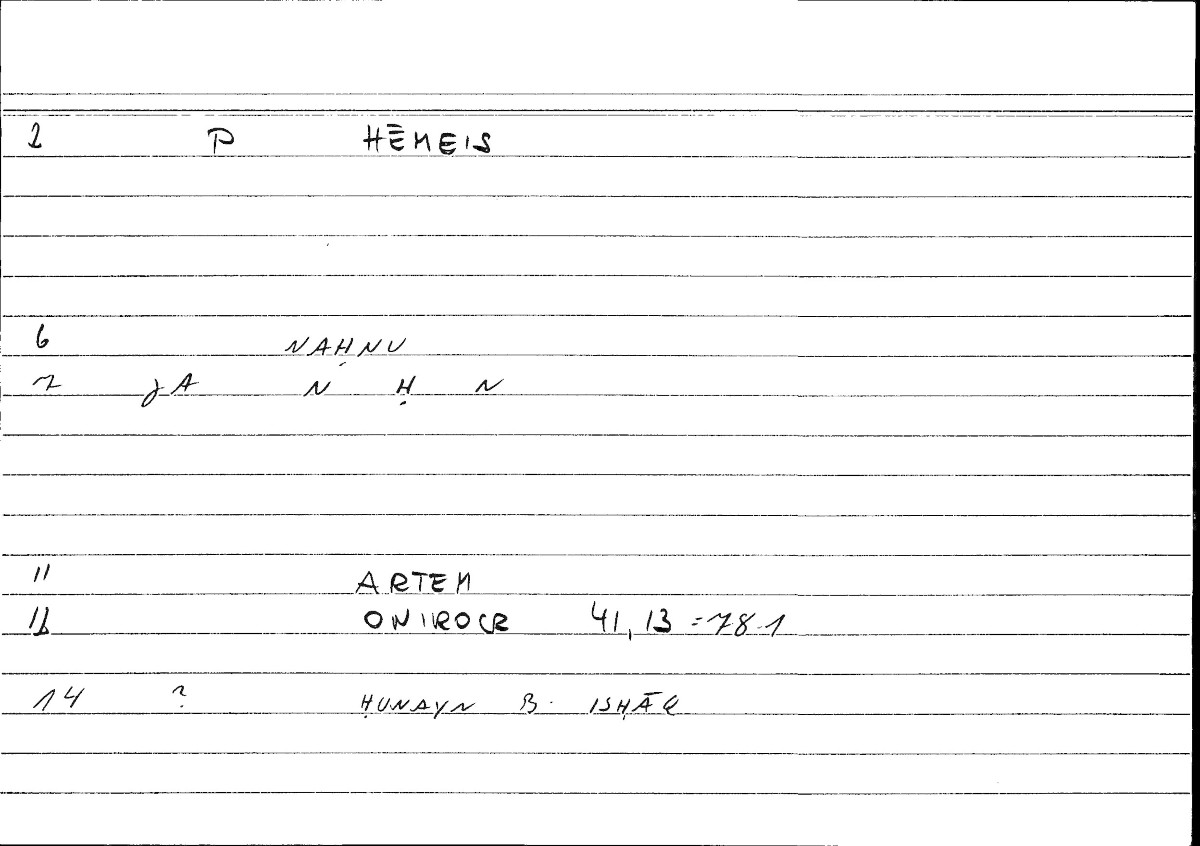 2 P HĒMEIS
6 NAḤNU
7 JA N Ḥ N
11 ARTEM
12 ONIROCR 41,13 = 78.1
14 ? ḤUNAYN B. ISḤĀQ